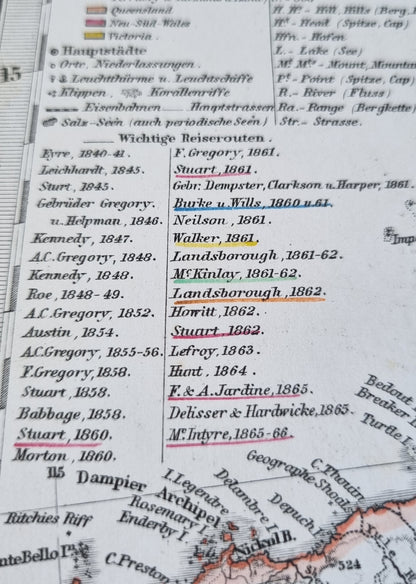 Queensland
Neu-Süd-Wales
Victoria
Hauptstädte
Orte, Niederlassungen.
& Leuchtthürme u. Leuchtschiffe
Klippen. Korallenriffe
Eisenbahnen Hauptstrassen
Salz-Seen (auch periodische Seen)
H. H.ˢ Hill, Hills (Berg,
H.ᵈ - Head (Spitze, Cap)
Hfn. - Hafen.
L. - Lake (See)
M.ᵗ M.ᵗˢ - Mount, Mountain
P.ᵗ - Point (Spitze, Cap)
R. - River (Fluss)
Ra. - Range (Bergkette)
Str. - Strasse.
15
Wichtige Reiserouten.
Eyre, 1840-41.
Leichhardt, 1845.
Sturt, 1845.
Gebrüder Gregory
u. Helpman, 1846.
Kennedy, 1847.
A.C. Gregory, 1848.
Kennedy, 1848.
Roe, 1848-49.
A.C. Gregory, 1852.
Austin, 1854.
A.C. Gregory, 1855-56.
F. Gregory, 1858.
Stuart, 1858.
Babbage, 1858.
Stuart, 1860.
Morton, 1860.
F. Gregory, 1861.
Stuart, 1861.
Gebr. Dempster, Clarkson u. Harper, 1861.
Burke u. Wills, 1860 u. 61.
Neilson, 1861.
Walker, 1861.
Landsborough, 1861-62.
M.ᶜ Kinlay, 1861-62.
Landsborough, 1862.
Howitt, 1862.
Stuart, 1862.
Lefroy, 1863.
Hunt, 1864.
F. & A. Jardine, 1865.
Delisser & Hardwicke, 1865.
M.ᶜ Intyre, 1865-66.
Bedout
Breaker I.
Turtle I.
115
Dampier Archipel
I. Legendre
Rosemary I.
Enderby I.
Delambre I.
Depuch I.
Geographe Shoals
C. Thouin
Ritchies Riff
Monte Bello I.ⁿ
C. Preston
Nickol B.
524